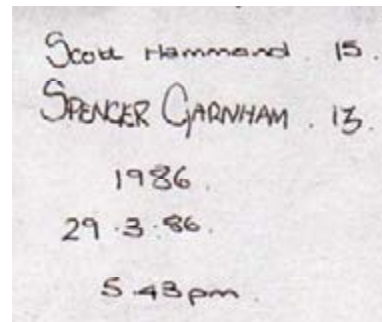 Scott Hammond . 15 .
SPENCER GARNHAM . 13.
1986 .
29 . 3 . 86 .
5 43pm .